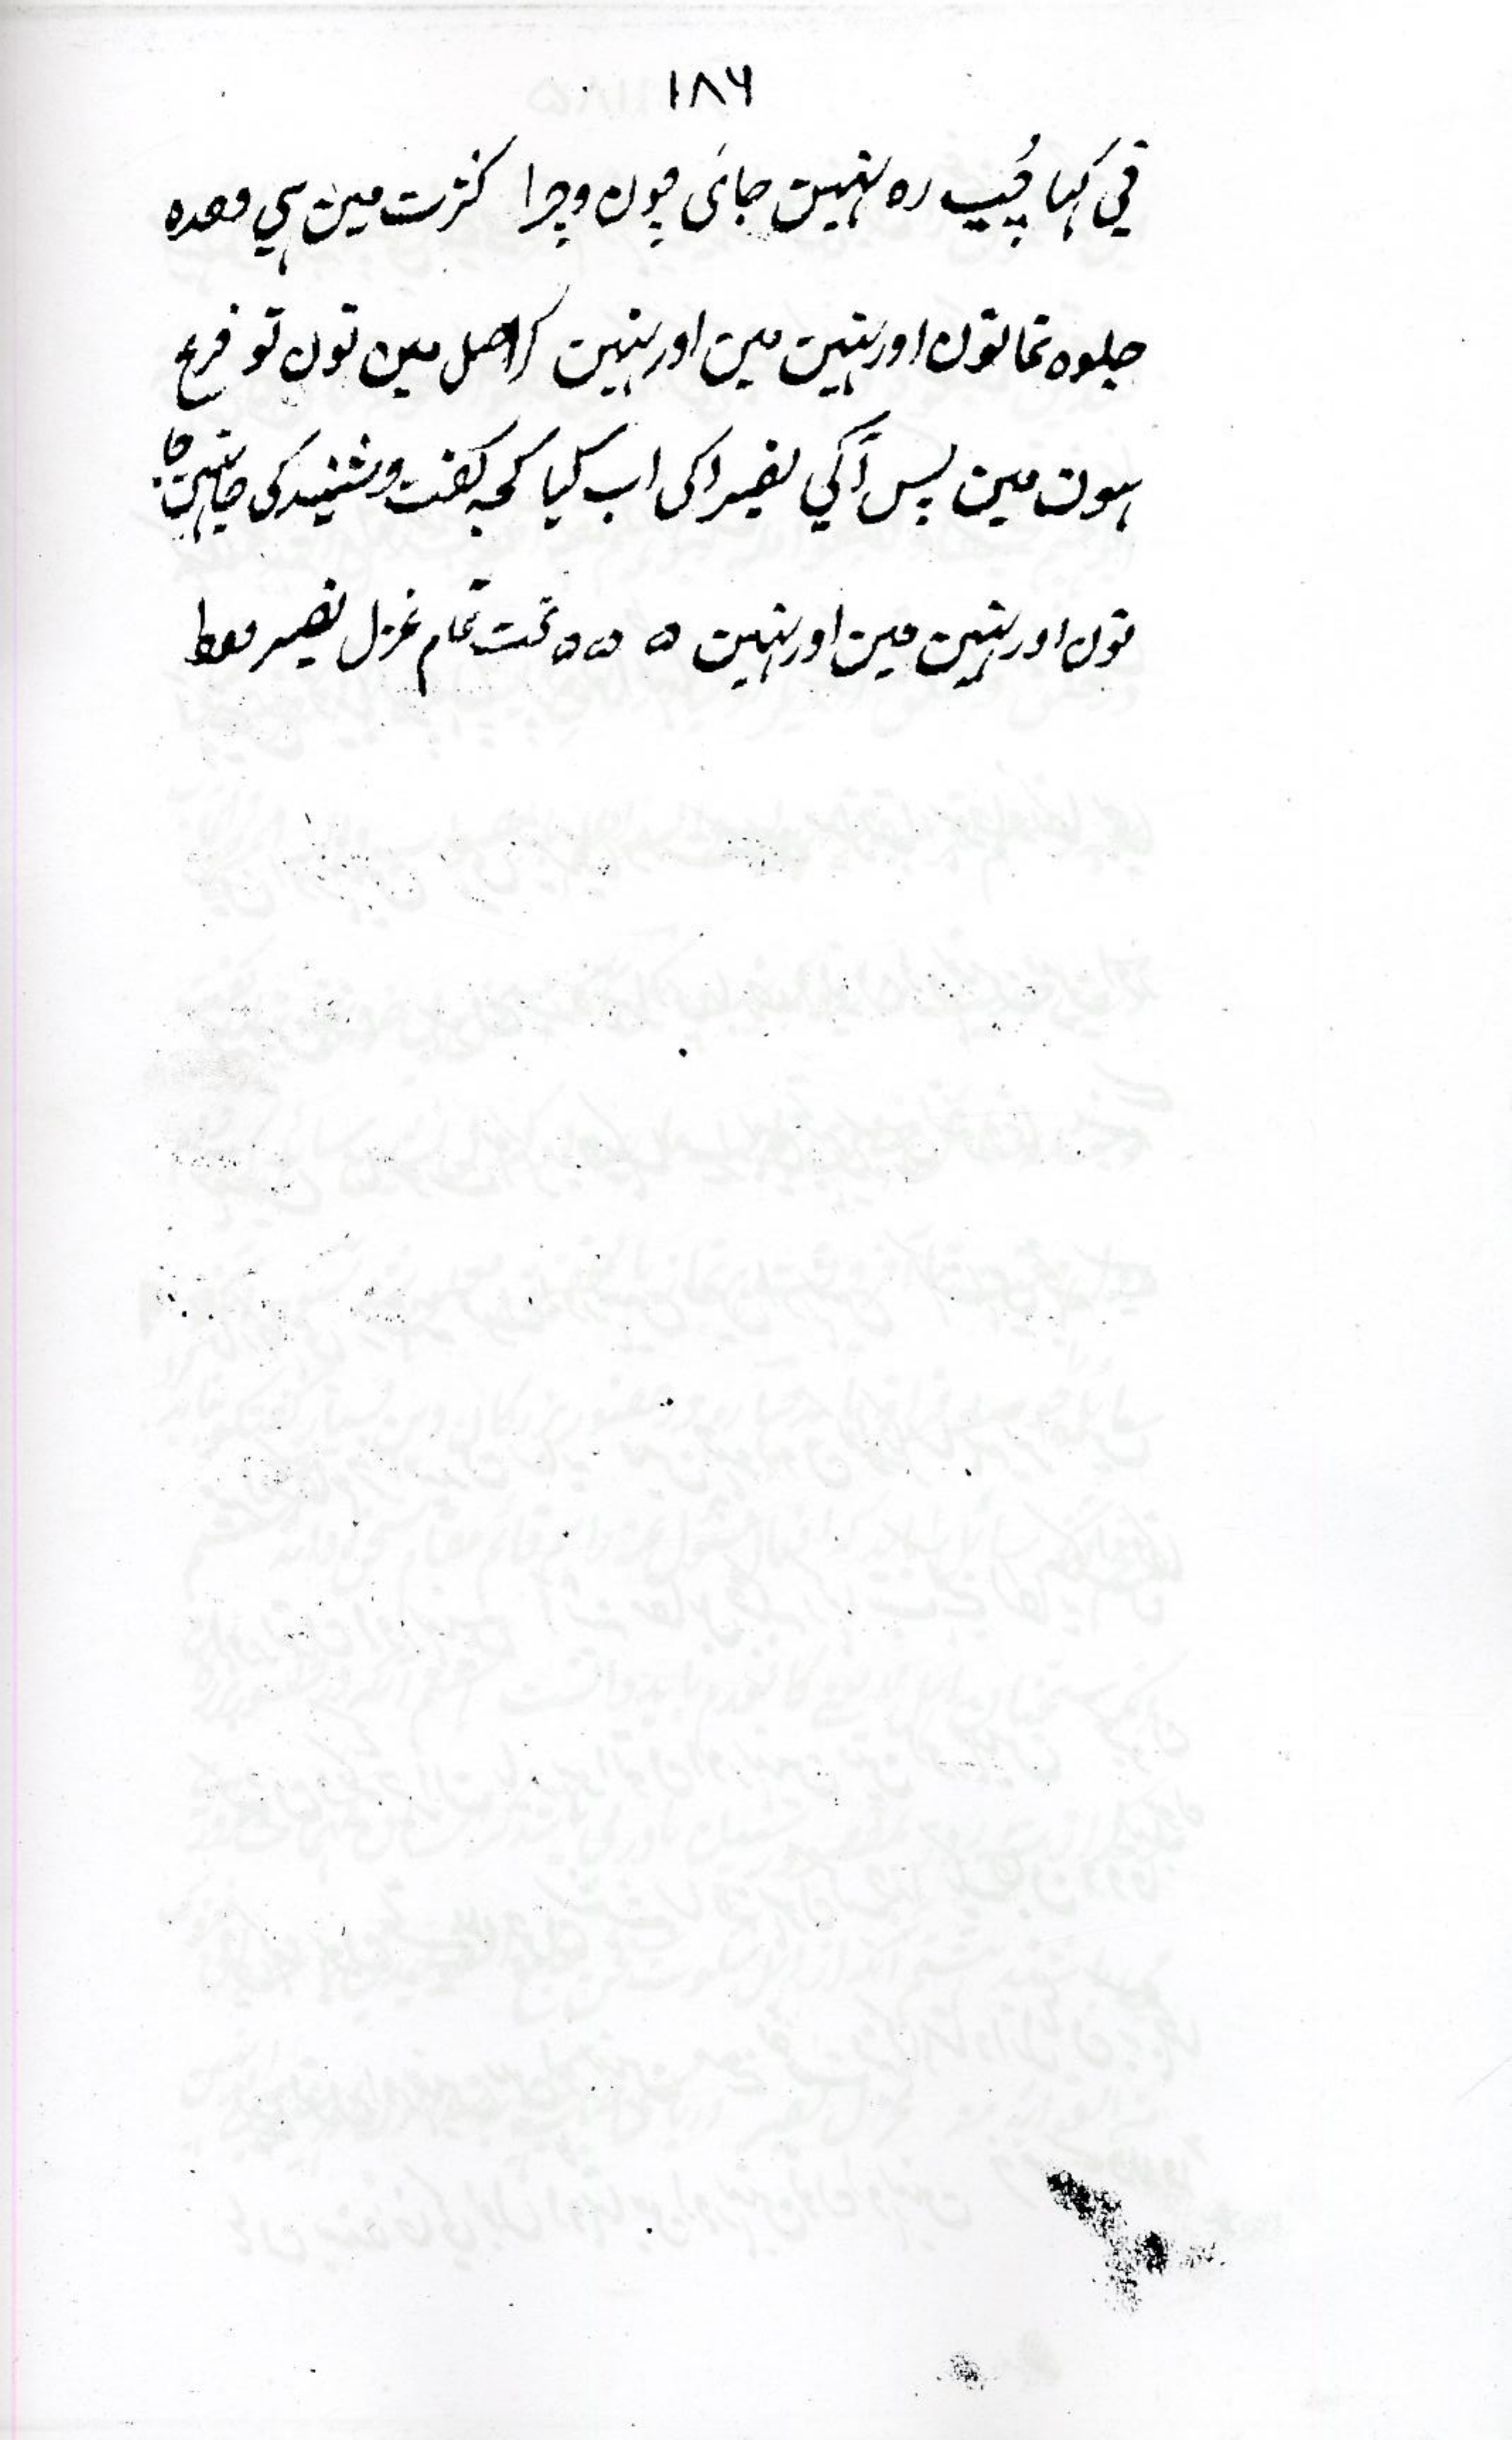 ۱۸۶
في کہا چُپ رہ نہین جائی چون و چرا کثرت مین ہي وحدہ
جلوہ نما تون اور نہین مین اور نہین گر اصل مین تون تو فرع
ہون مین پس آگي نصیر اکی اب کیا کچہ کفت و شنید کی جا نہین
تون اور نہین مین اور نہین ۵ ۵۵۵ تمت تمام غزل نصیر